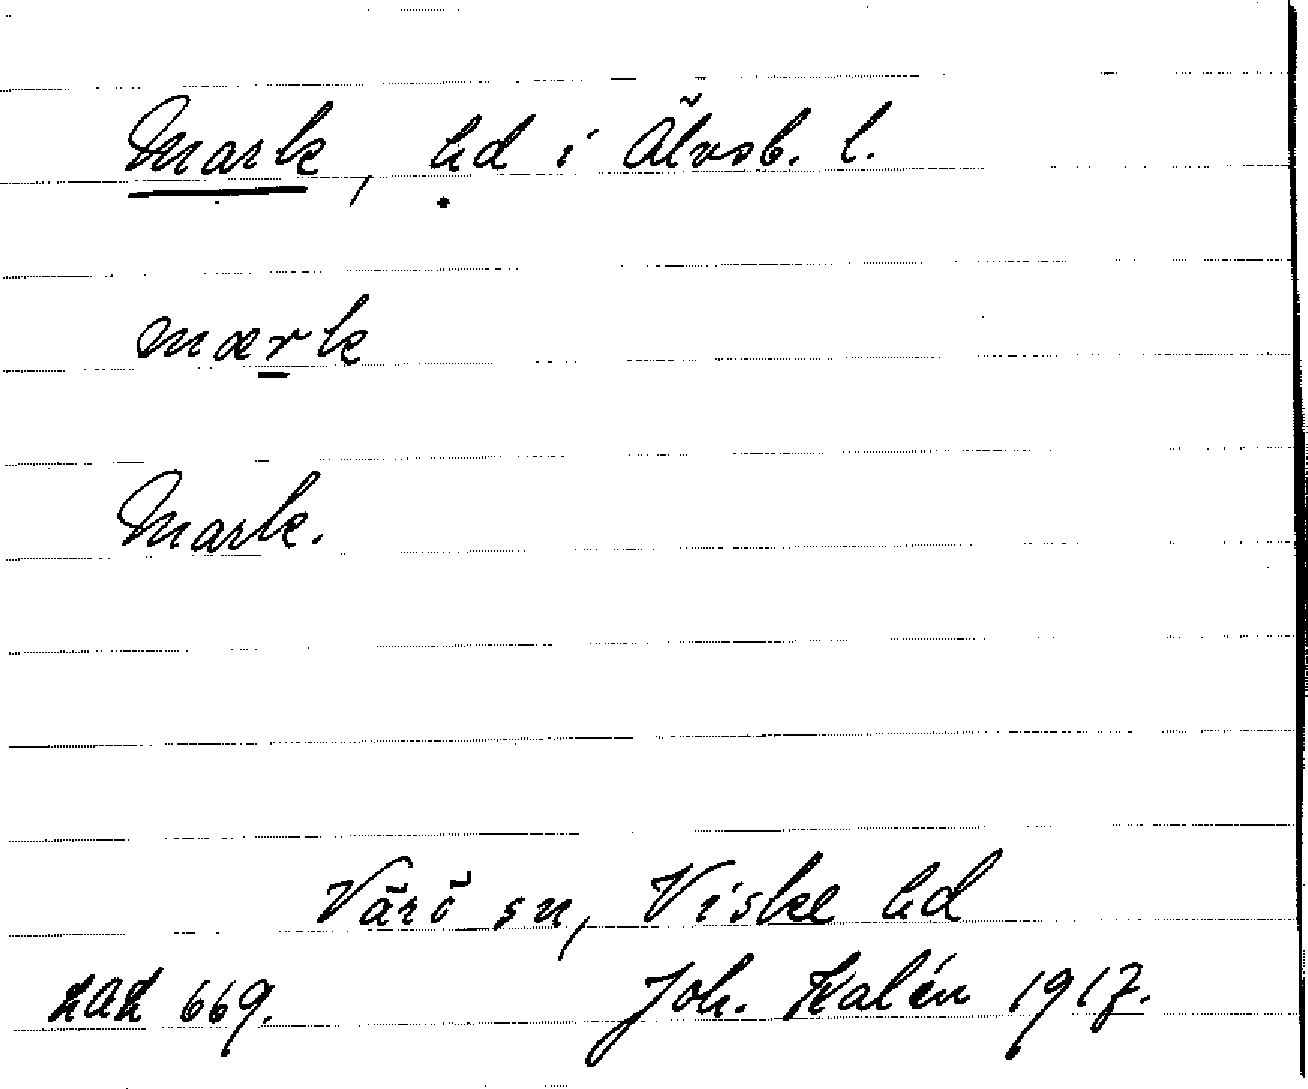 Mark, hd i Älvsb. l.
mærk
Mark.
Värö sn, Viske hd
LAL 669.
Joh. Kalén 1917.